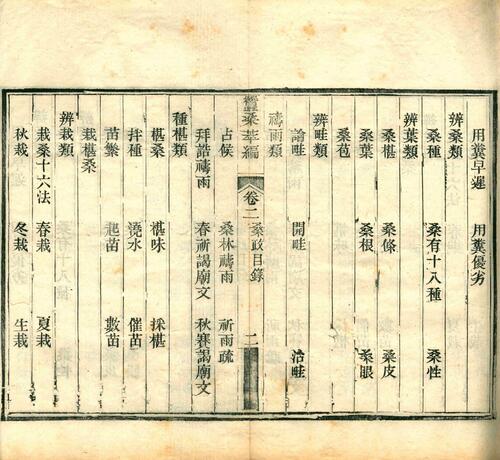 用糞早遲 用糞優劣
辨桑類
桑種 桑有十八種 桑性
辨葉類
桑椹 桑條 桑皮
桑葉 桑根 桑眼
桑苞
辨畦類
論畦 開畦 治畦
禱雨類
蠶桑萃編 卷二 桑政目錄 二
占候 桑林禱雨 祈雨疏
拜誥禱雨 春祈謁廟文 秋賽謁廟文
種椹類
椹桑 椹味 採椹
拌種 澆水 催苗
苗繁 起苗 數苗
栽椹桑
辨栽類
栽桑十六法 春栽 夏栽
秋栽 冬栽 生栽